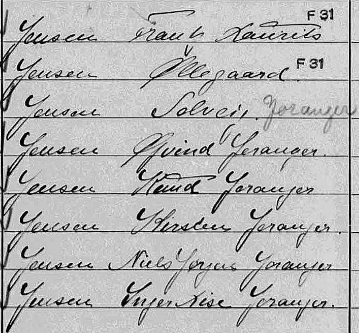 F 31
Jensen Frank Laurits
Jensen Øllegaard. F 31
Jensen Solveig. Joranger
Jensen Øvind Joranger.
Jensen Knud Joranger
Jensen Kirsten Joranger.
Jensen Niels Jørgen Joranger
Jensen Inger Nise Joranger.